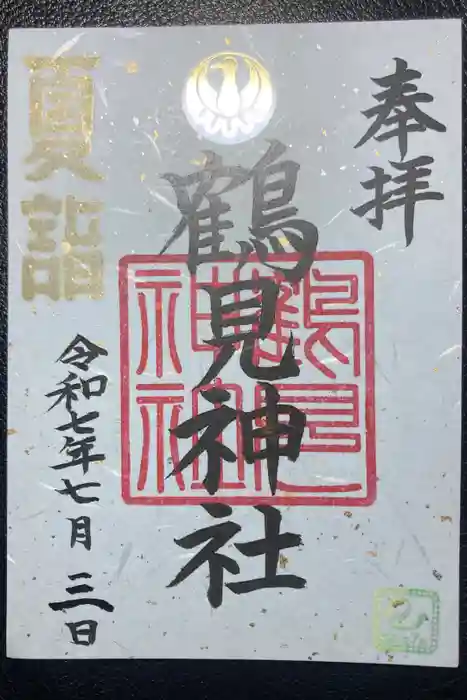 奉拝
鶴見神社
鶴見
神社
夏詣
令和七年七月三日